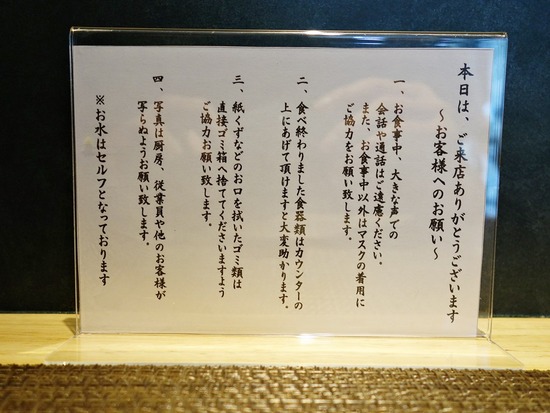 本日は、ご来店ありがとうございます
～お客様へのお願い～
一、お食事中、大きな声での
会話や通話はご遠慮ください。
また、お食事中以外はマスクの着用に
ご協力をお願い致します。
二、食べ終わりました食器類はカウンターの
上にあげて頂けますと大変助かります。
三、紙くずなどのお口を拭いたゴミ類は
直接ゴミ箱へ捨ててくださいますよう
ご協力お願い致します。
四、写真は厨房、従業員や他のお客様が
写らぬようお願い致します。
※お水はセルフとなっております